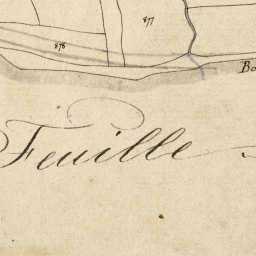 877
876
Bo
Feuille